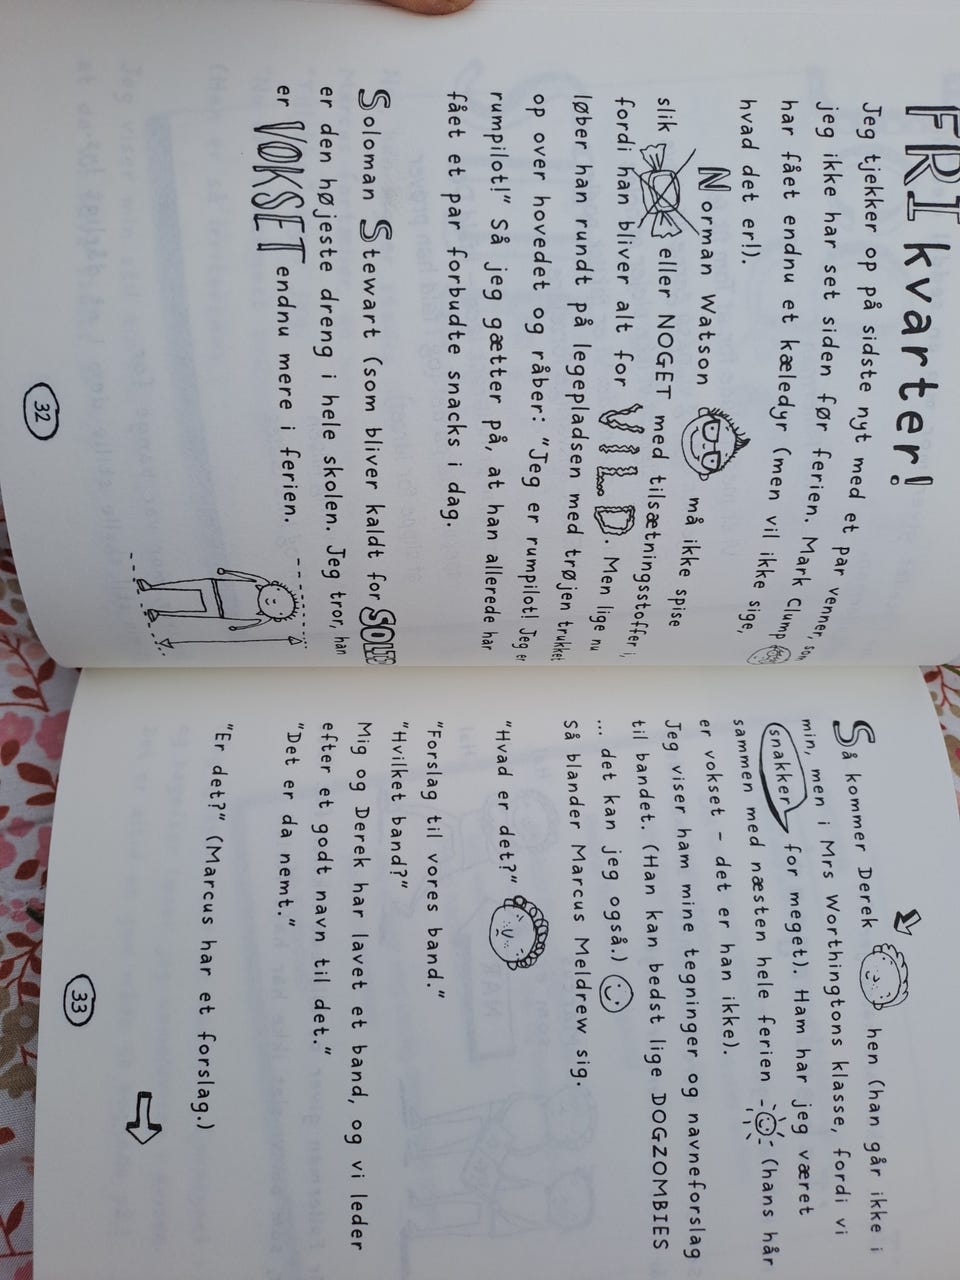 FRI kvarter!
Jeg tjekker op på sidste nyt med et par venner, som
jeg ikke har set siden før ferien. Mark Clump
har fået endnu et kæledyr (men vil ikke sige,
hvad det er!).
Norman Watson må ikke spise
slik eller NOGET med tilsætningsstoffer i,
fordi han bliver alt for VILD. Men lige nu
løber han rundt på legepladsen med trøjen trukket
op over hovedet og råber: "Jeg er rumpilot! Jeg er
rumpilot!" Så jeg gætter på, at han allerede har
fået et par forbudte snacks i dag.
Soloman Stewart (som bliver kaldt for SOLID)
er den højeste dreng i hele skolen. Jeg tror, han
er VOKSET endnu mere i ferien.
32
Så kommer Derek hen (han går ikke i
min, men i Mrs Worthingtons klasse, fordi vi
snakker for meget). Ham har jeg været
sammen med næsten hele ferien (hans hår
er vokset - det er han ikke).
Jeg viser ham mine tegninger og navneforslag
til bandet. (Han kan bedst lige DOGZOMBIES
... det kan jeg også.)
Så blander Marcus Meldrew sig.
"Hvad er det?"
"Forslag til vores band."
"Hvilket band?"
Mig og Derek har lavet et band, og vi leder
efter et godt navn til det."
"Det er da nemt."
"Er det?" (Marcus har et forslag.)
33